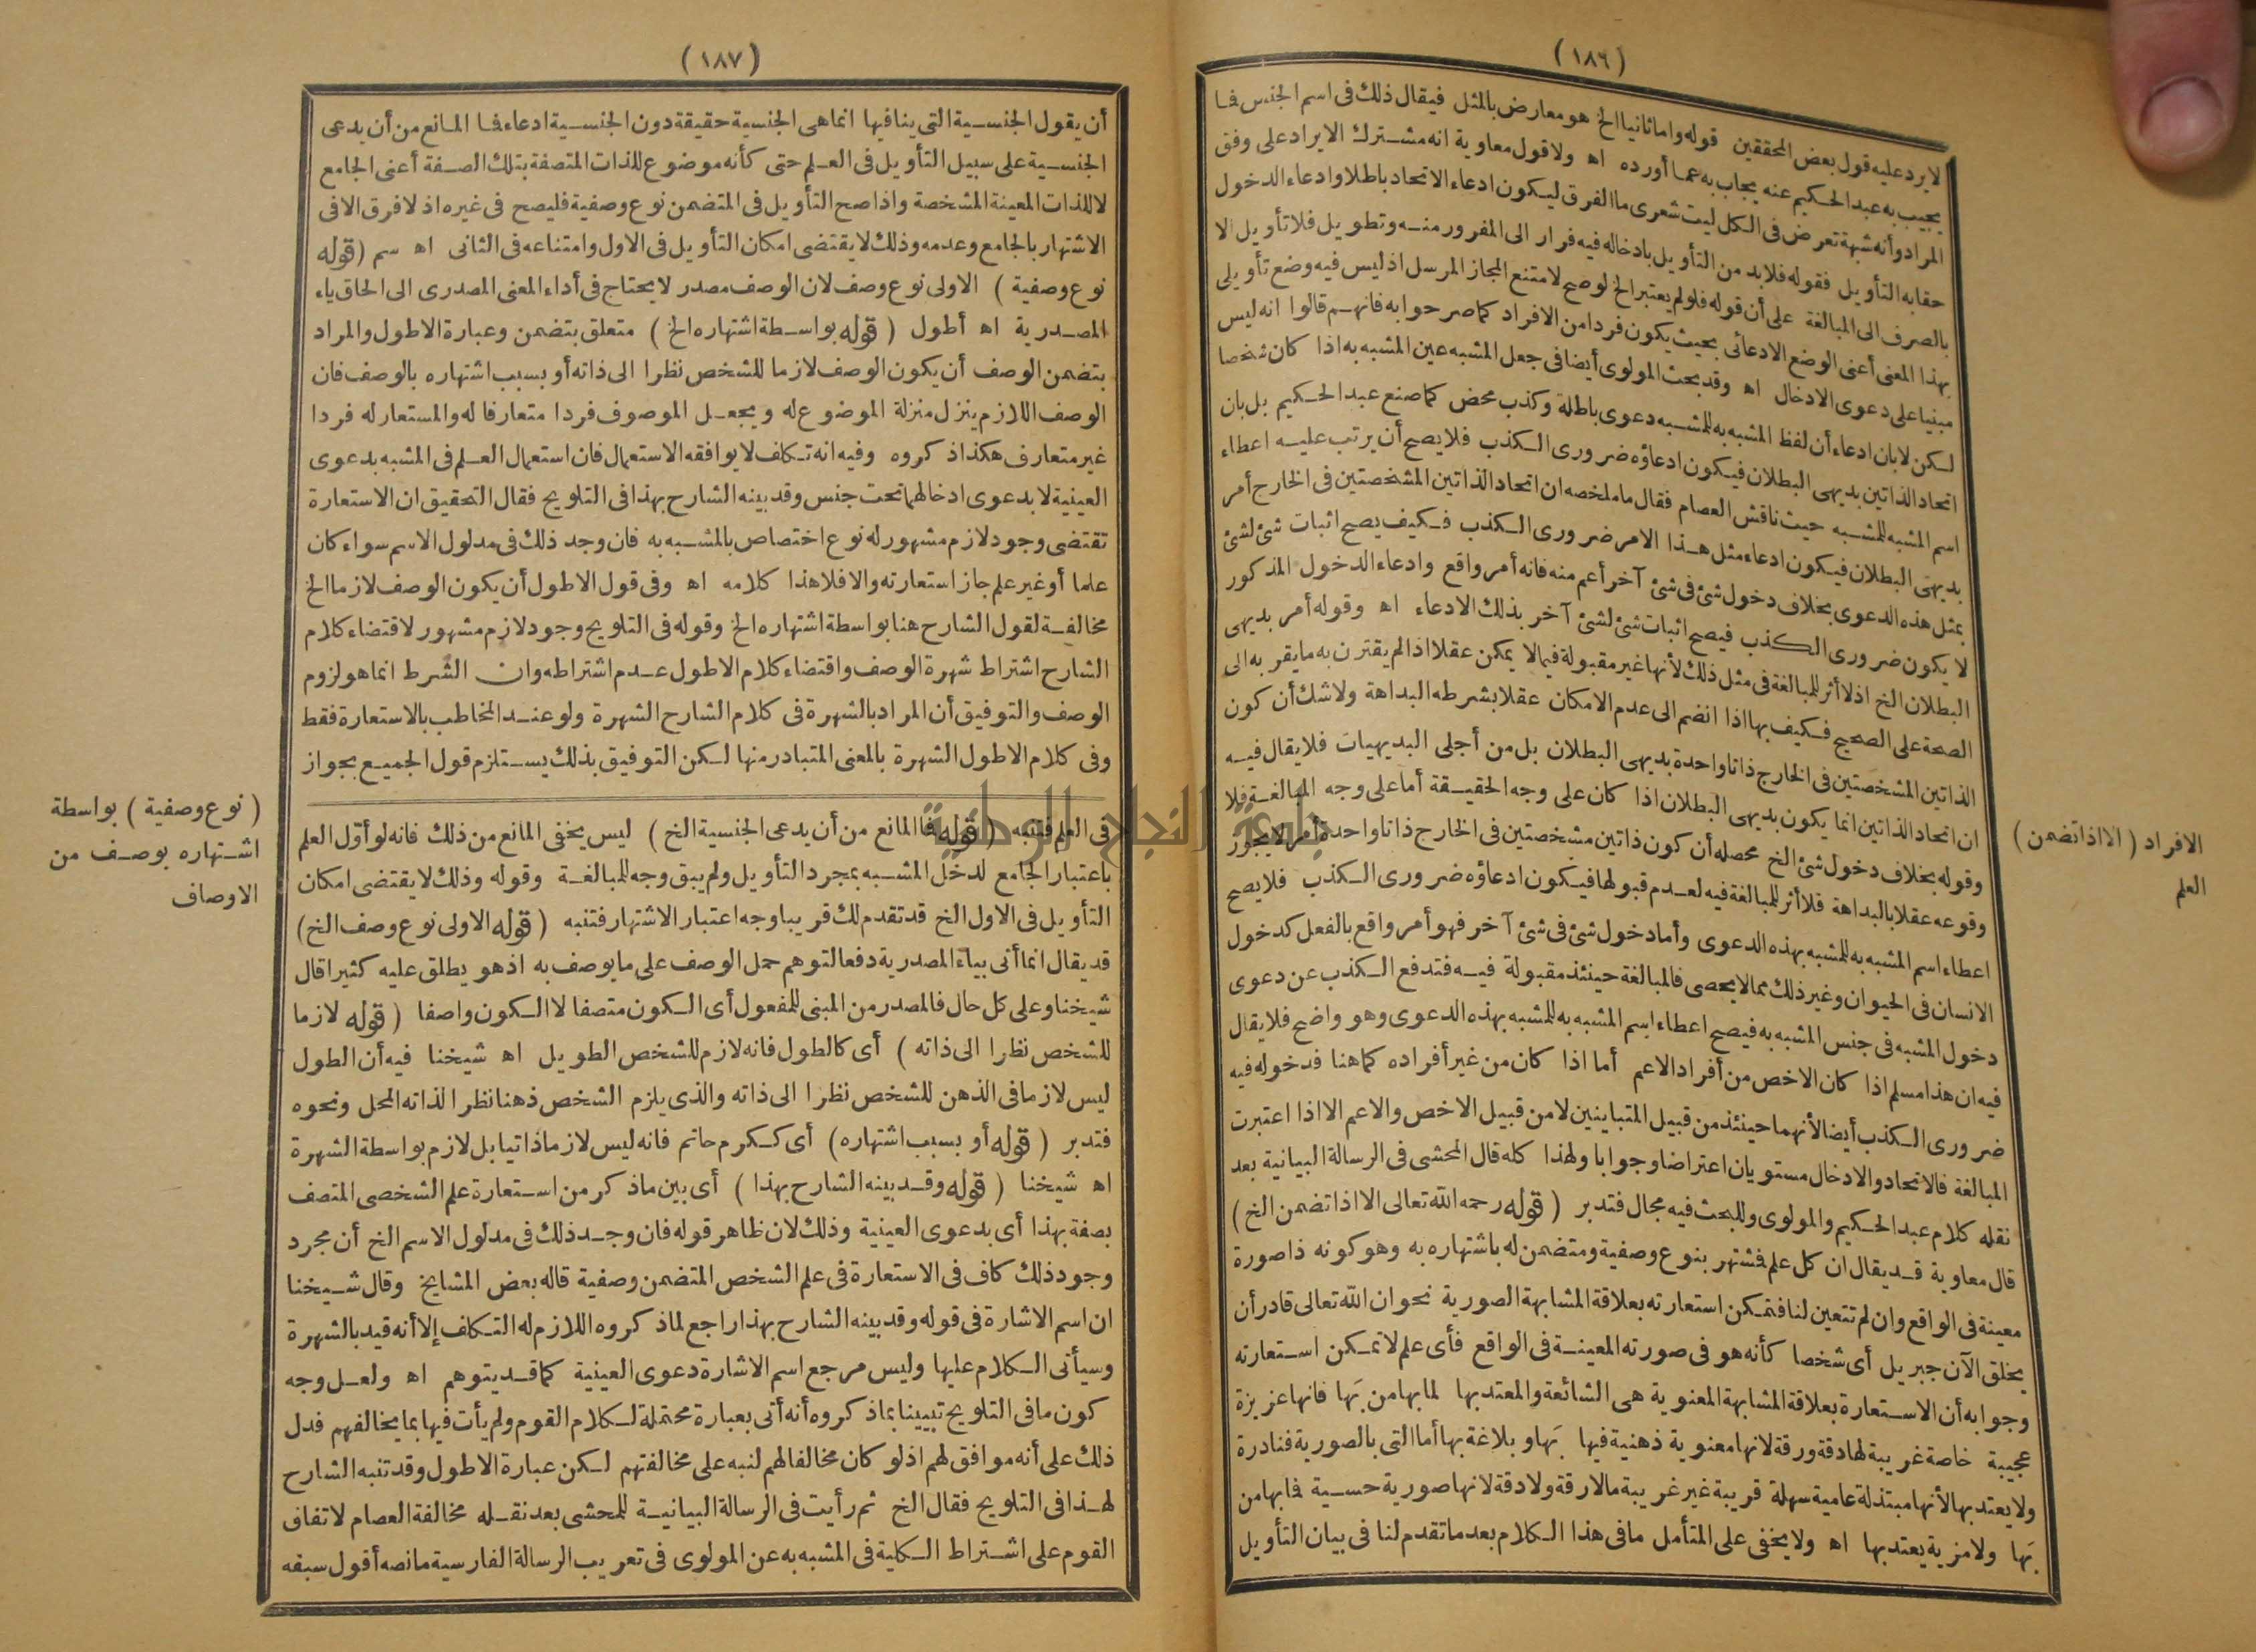 (١٨٦)
لا يرد عليه قول بعض المحققين قوله واما ثانيا الخ هو معارض بالمثل فيقال ذلك فى اسم الجنس فما
يجيب به عبد الحكيم عنه يجاب به عما أورده اه ولا قول معاوية انه مشترك الايراد على وفق
المراد وأنه شبهة تعرض فى الكل ليت شعرى ما الفرق ليكون ادعاء الاتحاد باطلا وادعاء الدخول
حقا به التأويل فقوله فلا بد من التأويل بادخاله فيه فرار الى المفرور منه وتطويل فلا تأويل الا
بالصرف الى المبالغة على أن قوله فلو لم يعتبر الخ لو صح لامتنع المجاز المرسل اذ ليس فيه وضع تأويلى
بهذا المعنى أعنى الوضع الادعائى بحيث يكون فردا من الافراد كما صرحوا به فانهم قالوا انه ليس
مبنيا على دعوى الادخال اه وقد بحث المولوى أيضا فى جعل المشبه عين المشبه به اذا كان شخصا
لكن لا بان ادعاء أن لفظ المشبه به للمشبه دعوى باطلة وكذب محض كما صنع عبد الحكيم بل بان
اتحاد الذاتين بديهى البطلان فيكون ادعاؤه ضرورى الكذب فلا يصح أن يرتب عليه اعطاء
اسم المشبه للمشبه حيث ناقش العصام فقال ما ملخصه ان اتحاد الذاتين المشخصتين فى الخارج أمر
بديهى البطلان فيكون ادعاء مثل هذا الامر ضرورى الكذب فكيف يصح اثبات شئ لشئ
بمثل هذه الدعوى بخلاف دخول شئ فى شئ آخر أعم منه فانه أمر واقع وادعاء الدخول المذكور
لا يكون ضرورى الكذب فيصح اثبات شئ لشئ آخر بذلك الادعاء اه وقوله أمر بديهى
البطلان الخ اذ لا أثر للمبالغة فى مثل ذلك لأنها غير مقبولة فيما لا يمكن عقلا اذا لم يقترن به ما يقربه الى
الصحة على الصحيح فكيف بها اذا انضم الى عدم الامكان عقلا بشرطه البداهة ولا شك أن كون
الذاتين المشخصتين فى الخارج ذاتا واحدة بديهى البطلان بل من أجلى البديهيات فلا يقال فيه
ان اتحاد الذاتين انما يكون بديهى البطلان اذا كان على وجه الحقيقة أما على وجه المبالغة فلا
وقوله بخلاف دخول شئ الخ محصله أن كون ذاتين مشخصتين فى الخارج ذاتا واحدة أمر لا يجوز
وقوعه عقلا بالبداهة فلا أثر للمبالغة فيه لعدم قبولها فيكون ادعاؤه ضرورى الكذب فلا يصح
اعطاء اسم المشبه به للمشبه بهذه الدعوى وأما دخول شئ فى شئ آخر فهو أمر واقع بالفعل كدخول
الانسان فى الحيوان وغير ذلك مما لا يحصى فالمبالغة حينئذ مقبولة فيه فتدفع الكذب عن دعوى
دخول المشبه فى جنس المشبه به فيصح اعطاء اسم المشبه به للمشبه بهذه الدعوى وهو واضح فلا يقال
فيه ان هذا مسلم اذا كان الاخص من أفراد الاعم أما اذا كان من غير أفراده كما هنا فدخوله فيه
ضرورى الكذب أيضا لأنهما حينئذ من قبيل المتباينين لا من قبيل الاخص والاعم الا اذا اعتبرت
المبالغة فالاتحاد والادخال مستويان اعتراضا وجوابا ولهذا كله قال المحشى فى الرسالة البيانية بعد
نقله كلام عبد الحكيم والمولوى وللبحث فيه مجال فتدبر (قوله رحمه الله تعالى الا اذا تضمن الخ)
قال معاوية قد يقال ان كل علم فشتهر بنوع وصفية ومتضمن له باشتهاره به وهو كونه ذا صورة
معينة فى الواقع وان لم تتعين لنا فتمكن استعارته بعلاقة المشابهة الصورية نحو ان الله تعالى قادر أن
يخلق الآن جبريل أى شخصا كأنه هو فى صورته المعينة فى الواقع فأى علم لا تمكن استعارته
وجوابه أن الاستعارة بعلاقة المشابهة المعنوية هى الشائعة والمعتد بها لما بها من بها فانها عزيزة
عجيبة خاصة غريبة لها دقة ورقة لانها معنوية ذهنية فيها بها وبلاغة بها أما التى بالصورية فنادرة
ولا يعتد بها لأنها مبتذلة عامية سهلة قريبة غير غريبة مالا رقة ولا دقة لانها صورية حسية فما بها من
بها ولا مزية يعتد بها اه ولا يخفى على المتأمل ما فى هذا الكلام بعد ما تقدم لنا فى بيان التأويل
الافراد (الا اذا تضمن)
العلم
(١٨٧)
أن يقول الجنسية التى ينافيها انما هى الجنسية حقيقة دون الجنسية ادعاء فما المانع من أن يدعى
الجنسية على سبيل التأويل فى العلم حتى كأنه موضوع للذات المتصفة بتلك الصفة أعنى الجامع
لا للذات المعينة المشخصة واذا صح التأويل فى المتضمن نوع وصفية فليصح فى غيره اذ لا فرق الا فى
الاشتهار بالجامع وعدمه وذلك لا يقتضى امكان التأويل فى الاول وامتناعه فى الثانى اه سم (قوله
نوع وصفية) الاولى نوع وصف لان الوصف مصدر لا يحتاج فى أداء المعنى المصدرى الى الحاق ياء
المصدرية اه أطول (قوله بواسطة اشتهاره الخ) متعلق بتضمن وعبارة الاطول والمراد
بتضمن الوصف أن يكون الوصف لازما للشخص نظرا الى ذاته أو بسبب اشتهاره بالوصف فان
الوصف اللازم ينزل منزلة الموضوع له ويجعل الموصوف فردا متعارفا له والمستعار له فردا
غير متعارف هكذا ذكروه وفيه انه تكلف لا يوافقه الاستعمال فان استعمال العلم فى المشبه بدعوى
العينية لا بدعوى ادخالهما تحت جنس وقد بينه الشارح بهذا فى التلويح فقال التحقيق ان الاستعارة
تقتضى وجود لازم مشهور له نوع اختصاص بالمشبه به فان وجد ذلك فى مدلول الاسم سواء كان
علما أو غير علم جاز استعارته والا فلا هذا كلامه اه وفى قول الاطول أن يكون الوصف لازما الخ
مخالفة لقول الشارح هنا بواسطة اشتهاره الخ وقوله فى التلويح وجود لازم مشهور لاقتضاء كلام
الشارح اشتراط شهرة الوصف واقتضاء كلام الاطول عدم اشتراطه وان الشرط انما هو لزوم
الوصف والتوفيق أن المراد بالشهرة فى كلام الشارح الشهرة ولو عند المخاطب بالاستعارة فقط
وفى كلام الاطول الشهرة بالمعنى المتبادر منها لكن التوفيق بذلك يستلزم قول الجميع بجواز
فى العلم فتنبه (قوله فما المانع من أن يدعى الجنسية الخ) ليس يخفى المانع من ذلك فانه لو أوّل العلم
باعتبار الجامع لدخل المشبه بمجرد التأويل ولم يبق وجه للمبالغة وقوله وذلك لا يقتضى امكان
التأويل فى الاول الخ قد تقدم لك قريبا وجه اعتبار الاشتهار فتنبه (قوله الاولى نوع وصف الخ)
قد يقال انما أتى بياء المصدرية دفعا لتوهم حمل الوصف على ما يوصف به اذ هو يطلق عليه كثيرا قال
شيخنا وعلى كل حال فالمصدر من المبنى للمفعول أى الكون متصفا لا الكون واصفا (قوله لازما
للشخص نظرا الى ذاته) أى كالطول فانه لازم للشخص الطويل اه شيخنا فيه أن الطول
ليس لازما فى الذهن للشخص نظرا الى ذاته والذى يلزم الشخص ذهنا نظرا لذاته المحل ونحوه
فتدبر (قوله أو بسبب اشتهاره) أى ككرم حاتم فانه ليس لازما ذاتيا بل لازم بواسطة الشهرة
اه شيخنا (قوله وقد بينه الشارح بهذا) أى بين ما ذكر من استعارة علم الشخصى المتصف
بصفة بهذا أى بدعوى العينية وذلك لان ظاهر قوله فان وجد ذلك فى مدلول الاسم الخ أن مجرد
وجود ذلك كاف فى الاستعارة فى علم الشخص المتضمن وصفية قاله بعض المشايخ وقال شيخنا
ان اسم الاشارة فى قوله وقد بينه الشارح بهذا راجع لما ذكروه اللازم له التكلف إلا أنه قيد بالشهرة
وسيأتى الكلام عليها وليس مرجع اسم الاشارة دعوى العينية كما قد يتوهم اه ولعل وجه
كون ما فى التلويح تبيينا بما ذكروه أنه أتى بعبارة محتملة لكلام القوم ولم يأت فيها بما يخالفهم فدل
ذلك على أنه موافق لهم اذ لو كان مخالفا لهم لنبه على مخالفتهم لكن عبارة الاطول وقد تنبه الشارح
لهذا فى التلويح فقال الخ ثم رأيت فى الرسالة البيانية للمحشى بعد نقله مخالفة العصام لاتفاق
القوم على اشتراط الكلية فى المشبه به عن المولوى فى تعريب الرسالة الفارسية ما نصه أقول سبقه
(نوع وصفية) بواسطة
اشتهاره بوصف من
الاوصاف
جامعة النجاح الوطنية